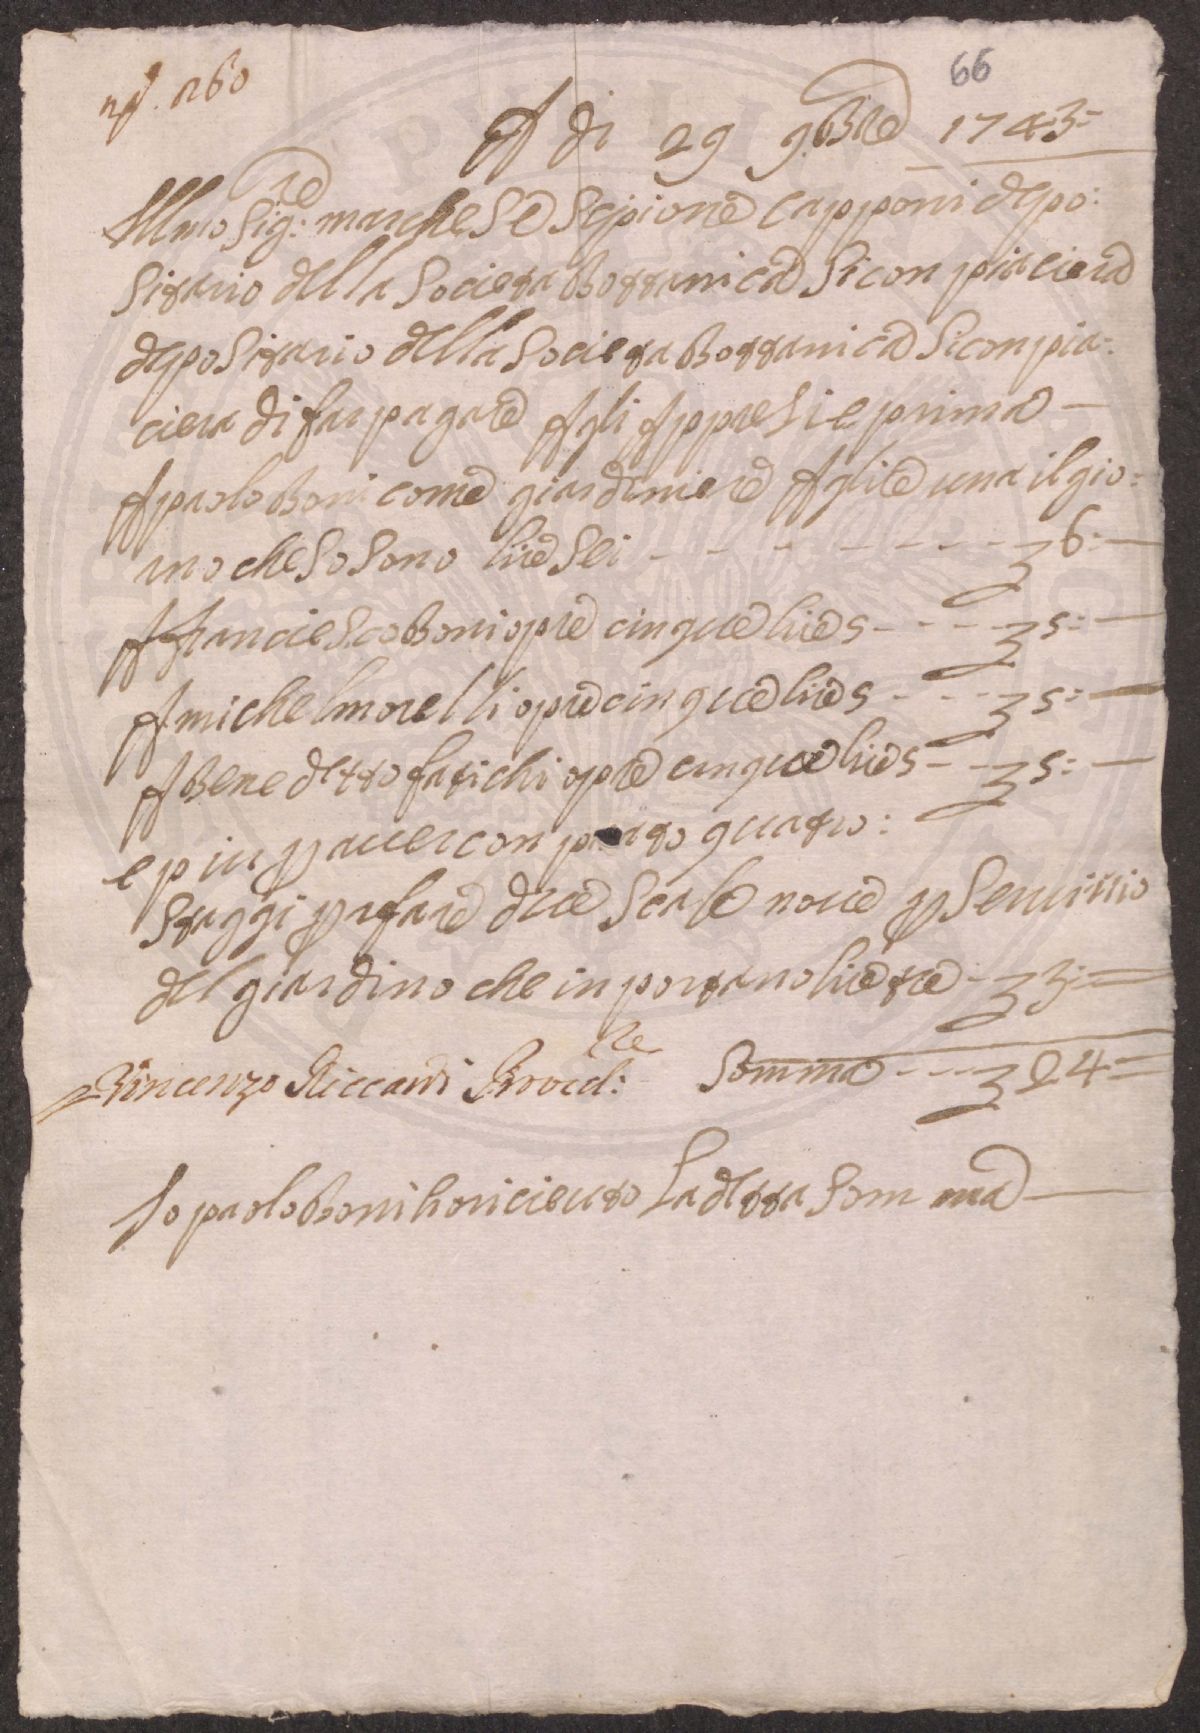 66
n.º 260
A di 29 9bre 1743
Illmo Sigre: marchese Scipione Capponi depo:
sitario della Societa Bottanica Si conpiaciera
depositario della Societa Bottanica Siconpia:
ciera di far pagare Agli Appresie prima
A paolo Boni come giardiniere A lire una il gio:
rno che So Sono lire Sei 6
A Franciesco Boni opre cinque lire 5 5
A michel morelli opre cinque lire 5 5
A Benedetto fatichi opre cinque lire 5 5
e piu p aver conprato quatro:
Staggi p rifare due Scale nove p Servitio
del giardino che inportano lire tre 3
Vincenzo Riccardi Provedre: Somma 24
Io paolo Boni ho riceuto La detta Somma